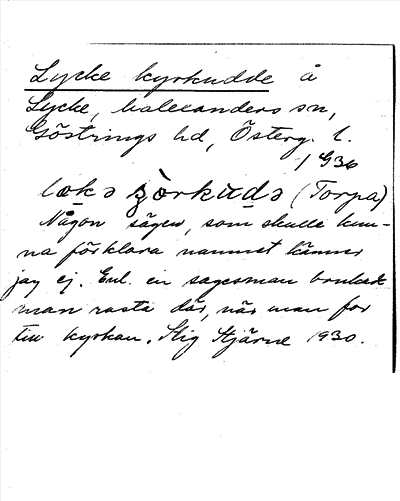 Lycke kyrkudde å
Lycke, Malexanders sn,
Göstrings hd, Österg. l.
1936
lœkə ʒòrkudə (Torpa)
Någon sägen, som skulle kun-
na förklara namnet känner
jag ej. Enl. en sagesman brukade
man rasta där, när man for
till kyrkan. Stig Stjärne 1930.